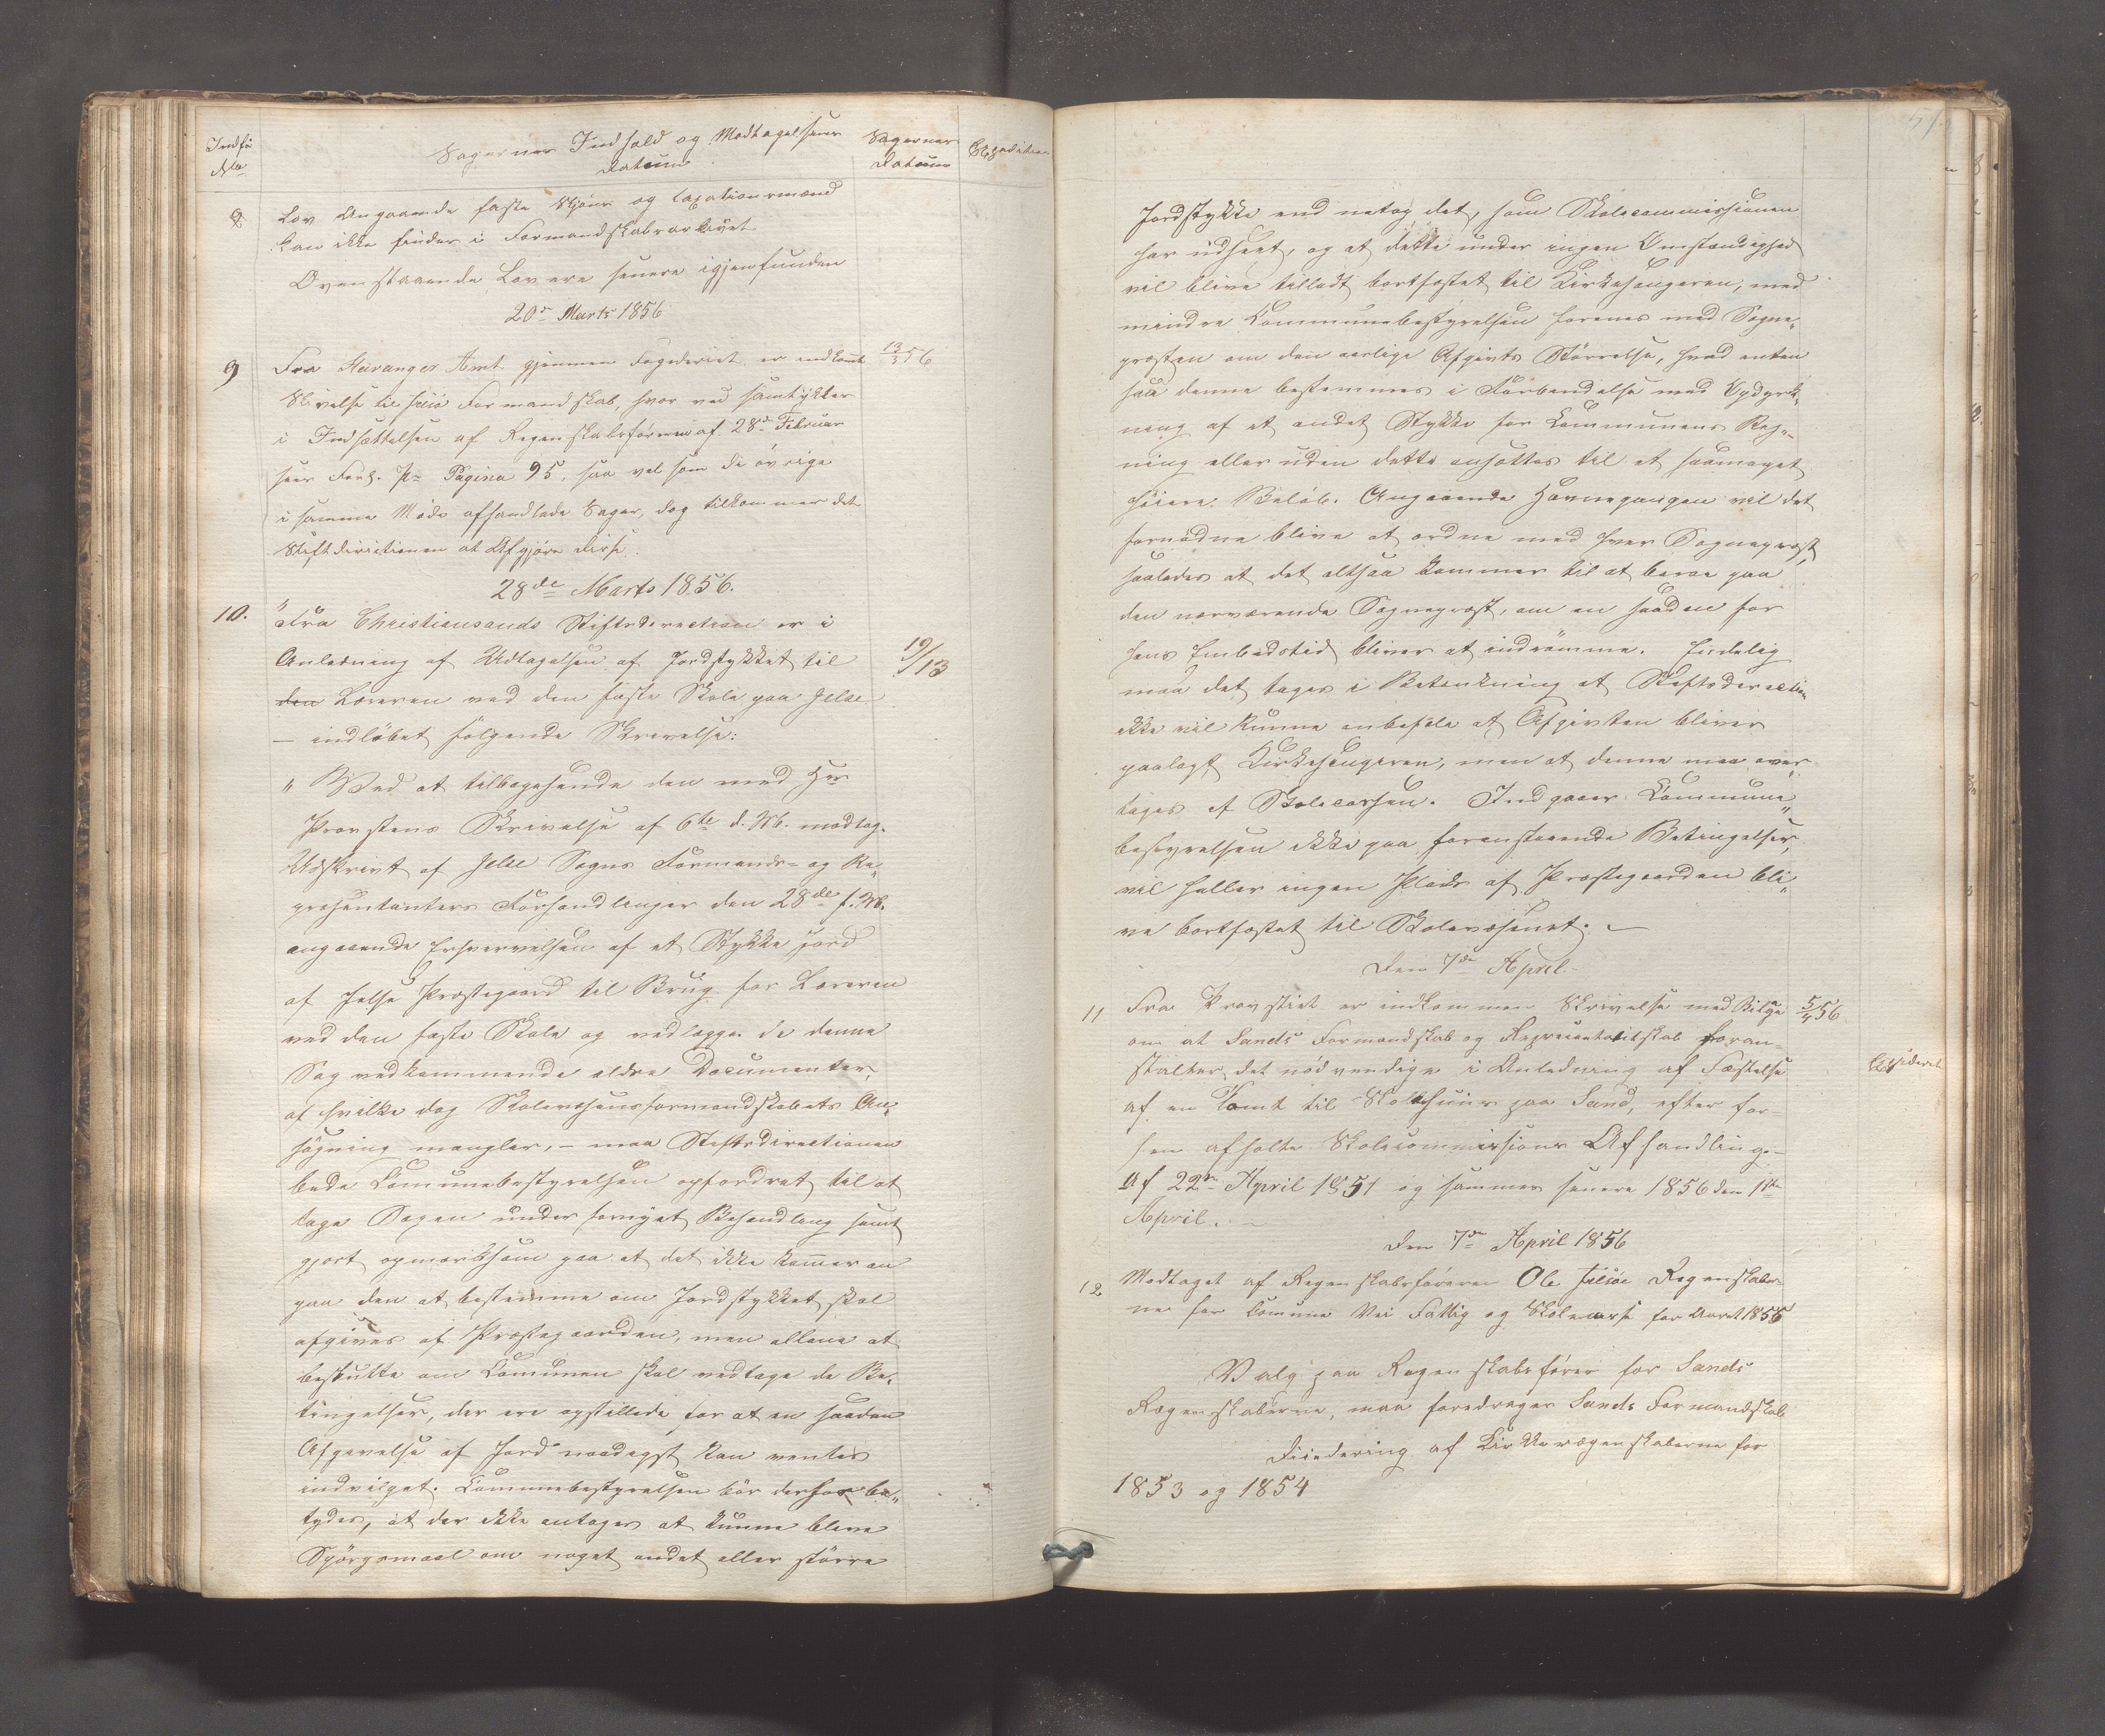 Sagernes Indhold og Modtagelsens
Datum
Sagernes
Datum
Expedition
Lov Angaaende faste Skjöns og Taxationsmænd
kan ikke findes i Formandskabsarkivet
Ovenstaaende Lov ere senere igjenfunden
20de Marts 1856
9 Fra Stavanger Amt gjennem Fogderiet er indkomt 13/3 56
Skrivelse til Jelsö Formandskab hvor ved samtykkes
i Indsættelsen af Regenskabsföreren af 28de Februar
sees Forh. Pr Pagina 95, saa vel som de övrige
i samme Möde afhandlede Sager, dog tilkommer det
Stiftdirictionen at Afgjöre disse.
28de Marts 1856.
10. Fra Christiansands Stiftsdirection er i
Anledning af Udtagelsen af Jordstykket til
den Læreren ved den faste Skole paa Jelse 19/13
– indlöbet fölgende Skrivelse:
" Ved at tilbagesende den med Hr
Provstens Skrivelse af 6te d. M. modtag.
Udskrivt af Jelse Sogns Formands- og Re„
presentanters Forhandlinger den 28de f. M.
angaaende Erhvervelsen af et Stykke Jord
af Jelse Præstegaard til Brug for Læreren
ved den faste Skole og vedlagge de denne
Sag vedkommende eldre Documenter,
af hvilke dog Skolevæsensformandskabets An„
sögning mangler, – maa Stiftsdirectionen
bede Communebestyrelsen opfordret til at
tage Sagen under fornyet Behandling samt
gjort opmærksom paa at det ikke kommer an
paa den at bestemme om Jordstykket skal
afgives af Præstegaarden, men allene at
beslutte om Communen skal vedtage de Be„
tingelser, der ere opstillede for at en saadan
Afgivelse af Jord naadigst kan ventes
indvilget. Communebestyrelsen bör derfor be„
tydes, at der ikke antages at kunne blive
Spörgsmaal om noget andet eller större
Jordstykke end netop det, som Skolecommissionen
har udseet, og at dette under ingen Omstændighed
vil blive tilladt bortfæstet til Kirkesangeren, med
mindre Communebestyrelsen forenes med Sogne„
præsten om den aarlige Afgivts Störrelse, hvad enten
saa denne bestemmes i Forbindelse med Opdyrk„
ning af et andet Stykke for Communens Reg„
ning eller uden dette ansættes til et saameget
höiere Belöb. Angaaende Havnegangen vil det
fornödne blive at ordne med hver Sognepræst,
saaledes at det altsaa kommer til at beroe paa
den nærværende Sognepræst, om en saadan for
hans Embedstid bliver at indrömme. Endelig
maa det tages i Betænkning at Stiftsdirection
ikke vil kunne anbefale at Afgivten bliver
paalagt Kirkesangeren, men at denne maa over
tages af Skolecassen. Indgaaer Commune„
bestyrelsen ikke paa foranstaaende Betingelser,
vil heller ingen Plads af Præstegaarden bli„
ve bortfæstet til Skolevæsenet. –
Den 7de April
11 Fra Provstiet er indkommen Skrivelse med Bilage 5/4 56
om at Sands Formandskab og Representantskab foran=
stalter det nödvendige i Anledning af Fæstelse
af en Tomt til Skolehuus paa Sand, efter for=
hen afholte Skolecommissions Afhandling=
Af 22de April 1851 og sammes senere 1856 den 1ste
April. –
Den 7de April 1856
12 Modtaget af Regenskabsföreren Ole Jelsöe Regenskaber=
ne for Comune Vei Fattig og Skolecasse for Aaret 1855
Valg paa Regenskabsförer for Sands
Regenskaberne, maa foredrages Sands Formandskab
Diidering af Kirkeregenskaberne for
1853 og 1854